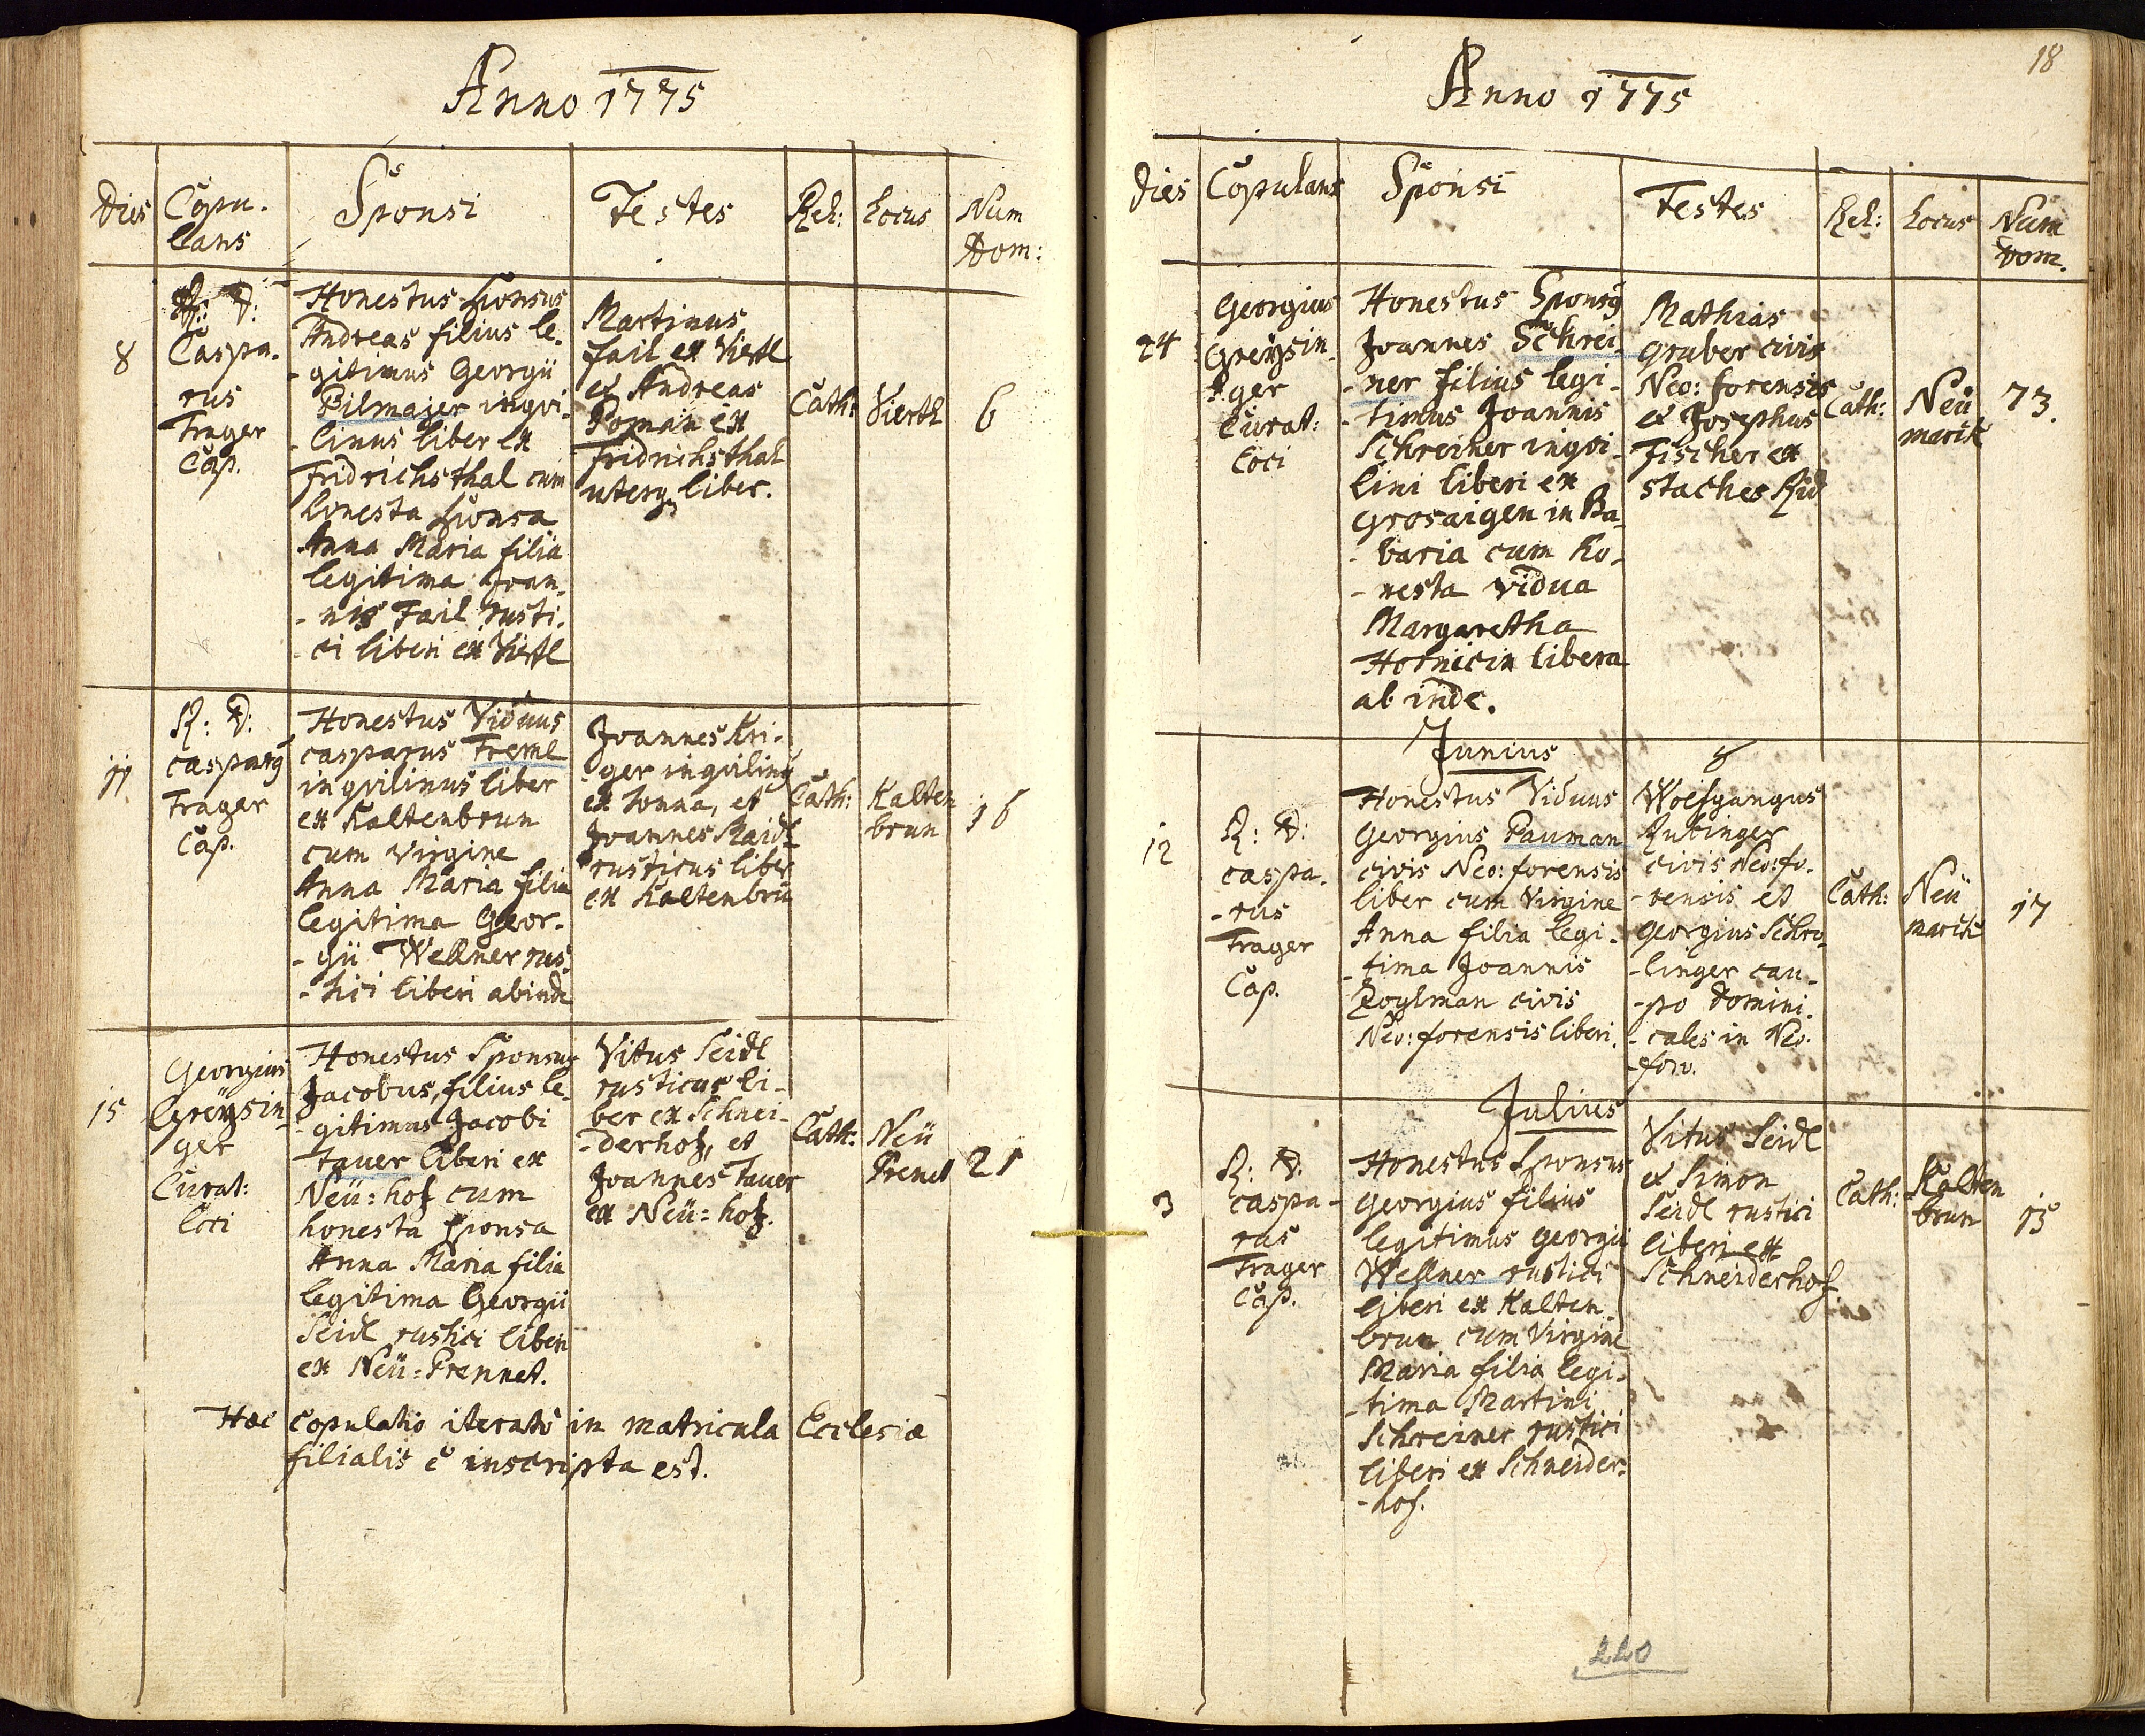 Anno 1775
Dies
Copu-
lans
Sponsi
Testes
Rel:
Locus
Num
Dom:
8
R: D:
Caspa-
rus
Trager
Cap.
Honestus Sponsus
Andreas filius le-
-gitimus Georgii
Bilmajer inqvi-
-linus liber ex
Fridrichsthal cum
honesta Sponsa
Anna Maria filia
legitima Joan-
-nis Fail rusti-
-ci liberi ex Viertl
Martinus
Fail ex Viertl
et Andreas
Roman ex
Fridrichsthal
uterq liber.
Cath:
Vierth
6
11
R: D:
Casparg
Trager
Cap.
Honestus Viduus
Casparus Treml
inqvilinus liber
ex Kaltenbrun
cum Virgine
Anna Maria filia
legitima Geor-
-gii Wellner rus-
-tici liberi abinde
Joannes Kri-
-ger inqviling
ex Lonna, et
Joannes Maidl
rusticus liber
ex Kaltenbrū
Cath:
Kalten
brun
16
15
Georgius
Greysin-
ger
Curat:
loci
Honestus Sponsus
Jacobus, filius le-
-gitimus Jacobi
Tauer liberi ex
Neü=hof cum
honesta Sponsa
Anna Maria filia
legitima Georgii
Seidl rustici liberi
ex Neü=Prennet.
Vitus Seidl
rusticus li-
ber ex Schnei-
-derhof, et
Joannes Tauer
ex Neü=hof.
Cath:
Neü
Prenet
21
Hæc copulatio iterato in matricula Ecclesiæ
filialis è inscripta est.
18
Anno 1775
Dies
Copulans
Sponsi
Testes
Rel:
Locus
Num
Dom.
24
Georgius
Greysin-
ger
Curat:
loci
Honestus Sponsg
Joannes Schrei-
-ner filius legi-
-timus Joannis
Schreiner inqvi-
lini liberi ex
Grosaigen in Ba-
-varia cum ho-
-nesta Vidua
Margaretha
Hornicin libera
ab inde.
Mathias
Gruber civis
Neo: forensis
et Josephus
Fischer ex
Staches Rid
Cath:
Neü
markt
73.
Junius
12
R: D:
Caspa-
-rus
Trager
Cap.
Honestus Viduus
Georgius Pauman
civis Neo: forensis
liber cum Virgine
Anna filia legi-
-tima Joannis
Zoglman civis
Neo: forensis liberi.
Wolfgangus
Rubinger
civis Neo: fo-
-rensis et
Georgius Schro-
-linger cau-
-po domini-
-cales in Neo-
-foro.
Cath:
Neü
markt
17
Julius
3
R: D:
Caspa-
rus
Trager
Cap.
Honestus Sponsus
Georgius filius
legitimus Georgii
Wellner rustici
liberi ex Kalten-
brun cum Virgine
Maria filia legi-
-tima Martini
Schreiner rustici
liberi ex Schneider-
-hof.
Vitus Seidl
et Simon
Seidl rustici
liberi ex
Schneiderhof
Cath:
Kalten
brun
15
220